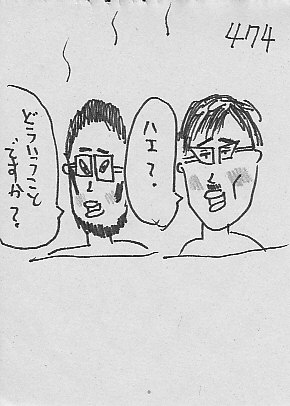 474
ハエ?
どういうこと
ですか?